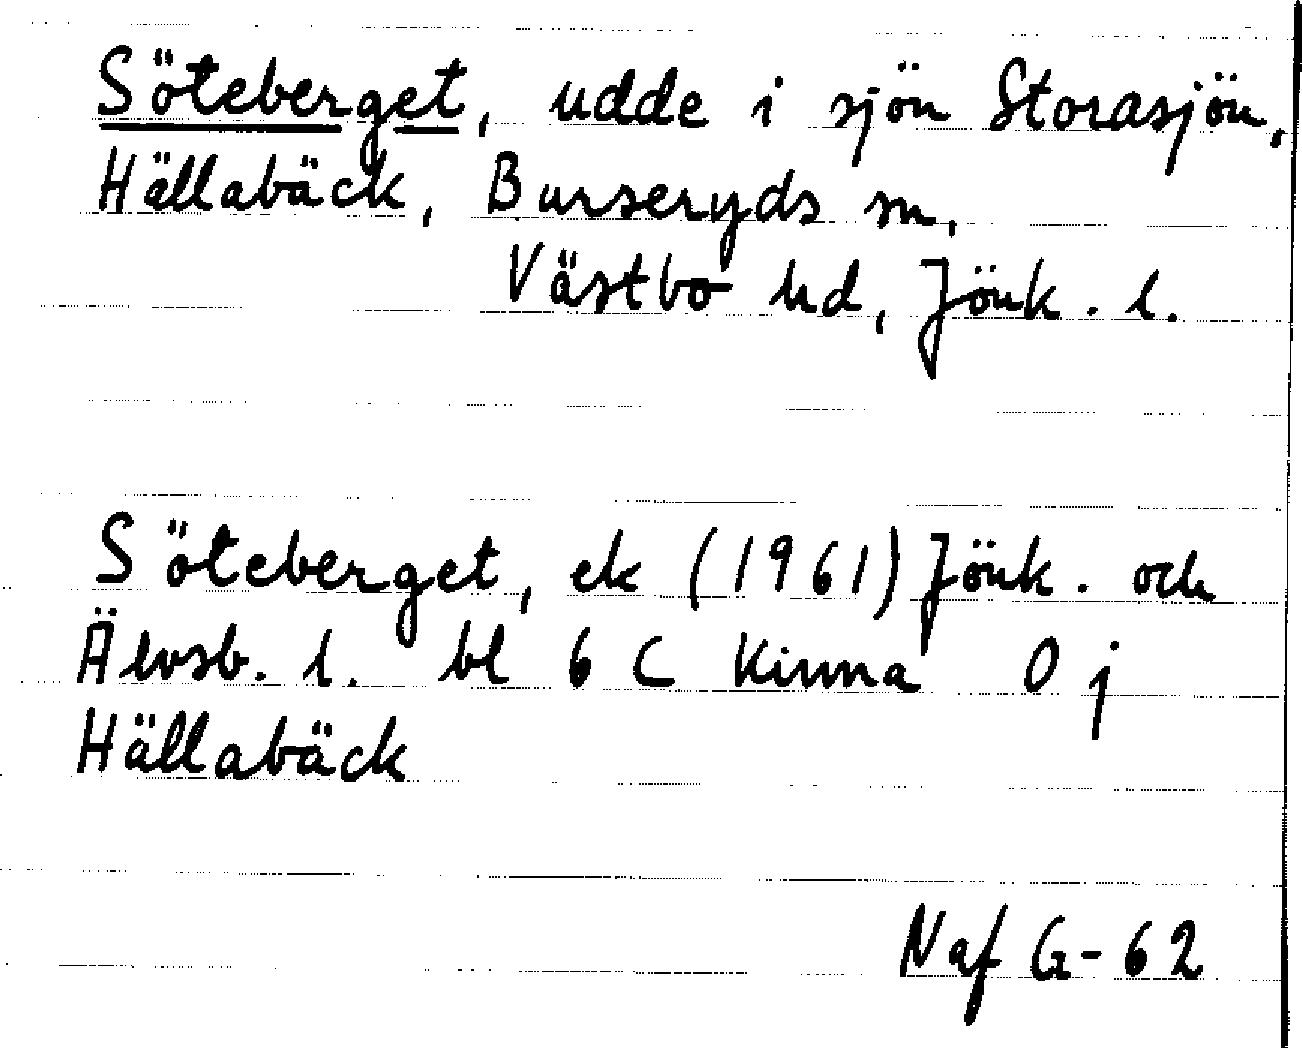 Söteberget, udde i sjön Storasjön,
Hällabäck, Burseryds sn,
Västbo hd, Jönk. l.
Söteberget, ek (1961) Jönk. och
Älvsb. l. bl 6 C Kinna 0 j
Hällabäck
Naf G-62